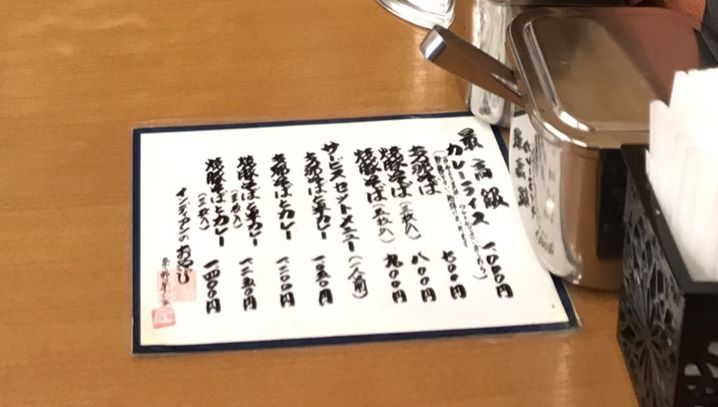 最高級
カレーライス 一、〇〇〇円
支那そば 七〇〇円
焼豚そば(三枚入) 八〇〇円
焼豚そば(五枚入) 九〇〇円
サービスセットメニュー(一人前)
支那そばと半カレー 一、〇五〇円
支那そばとカレー 一、二〇〇円
焼豚そばと半カレー(三枚入) 一、二五〇円
焼豚そばとカレー(三枚入) 一、四〇〇円
インディアンのおやじ
最高級